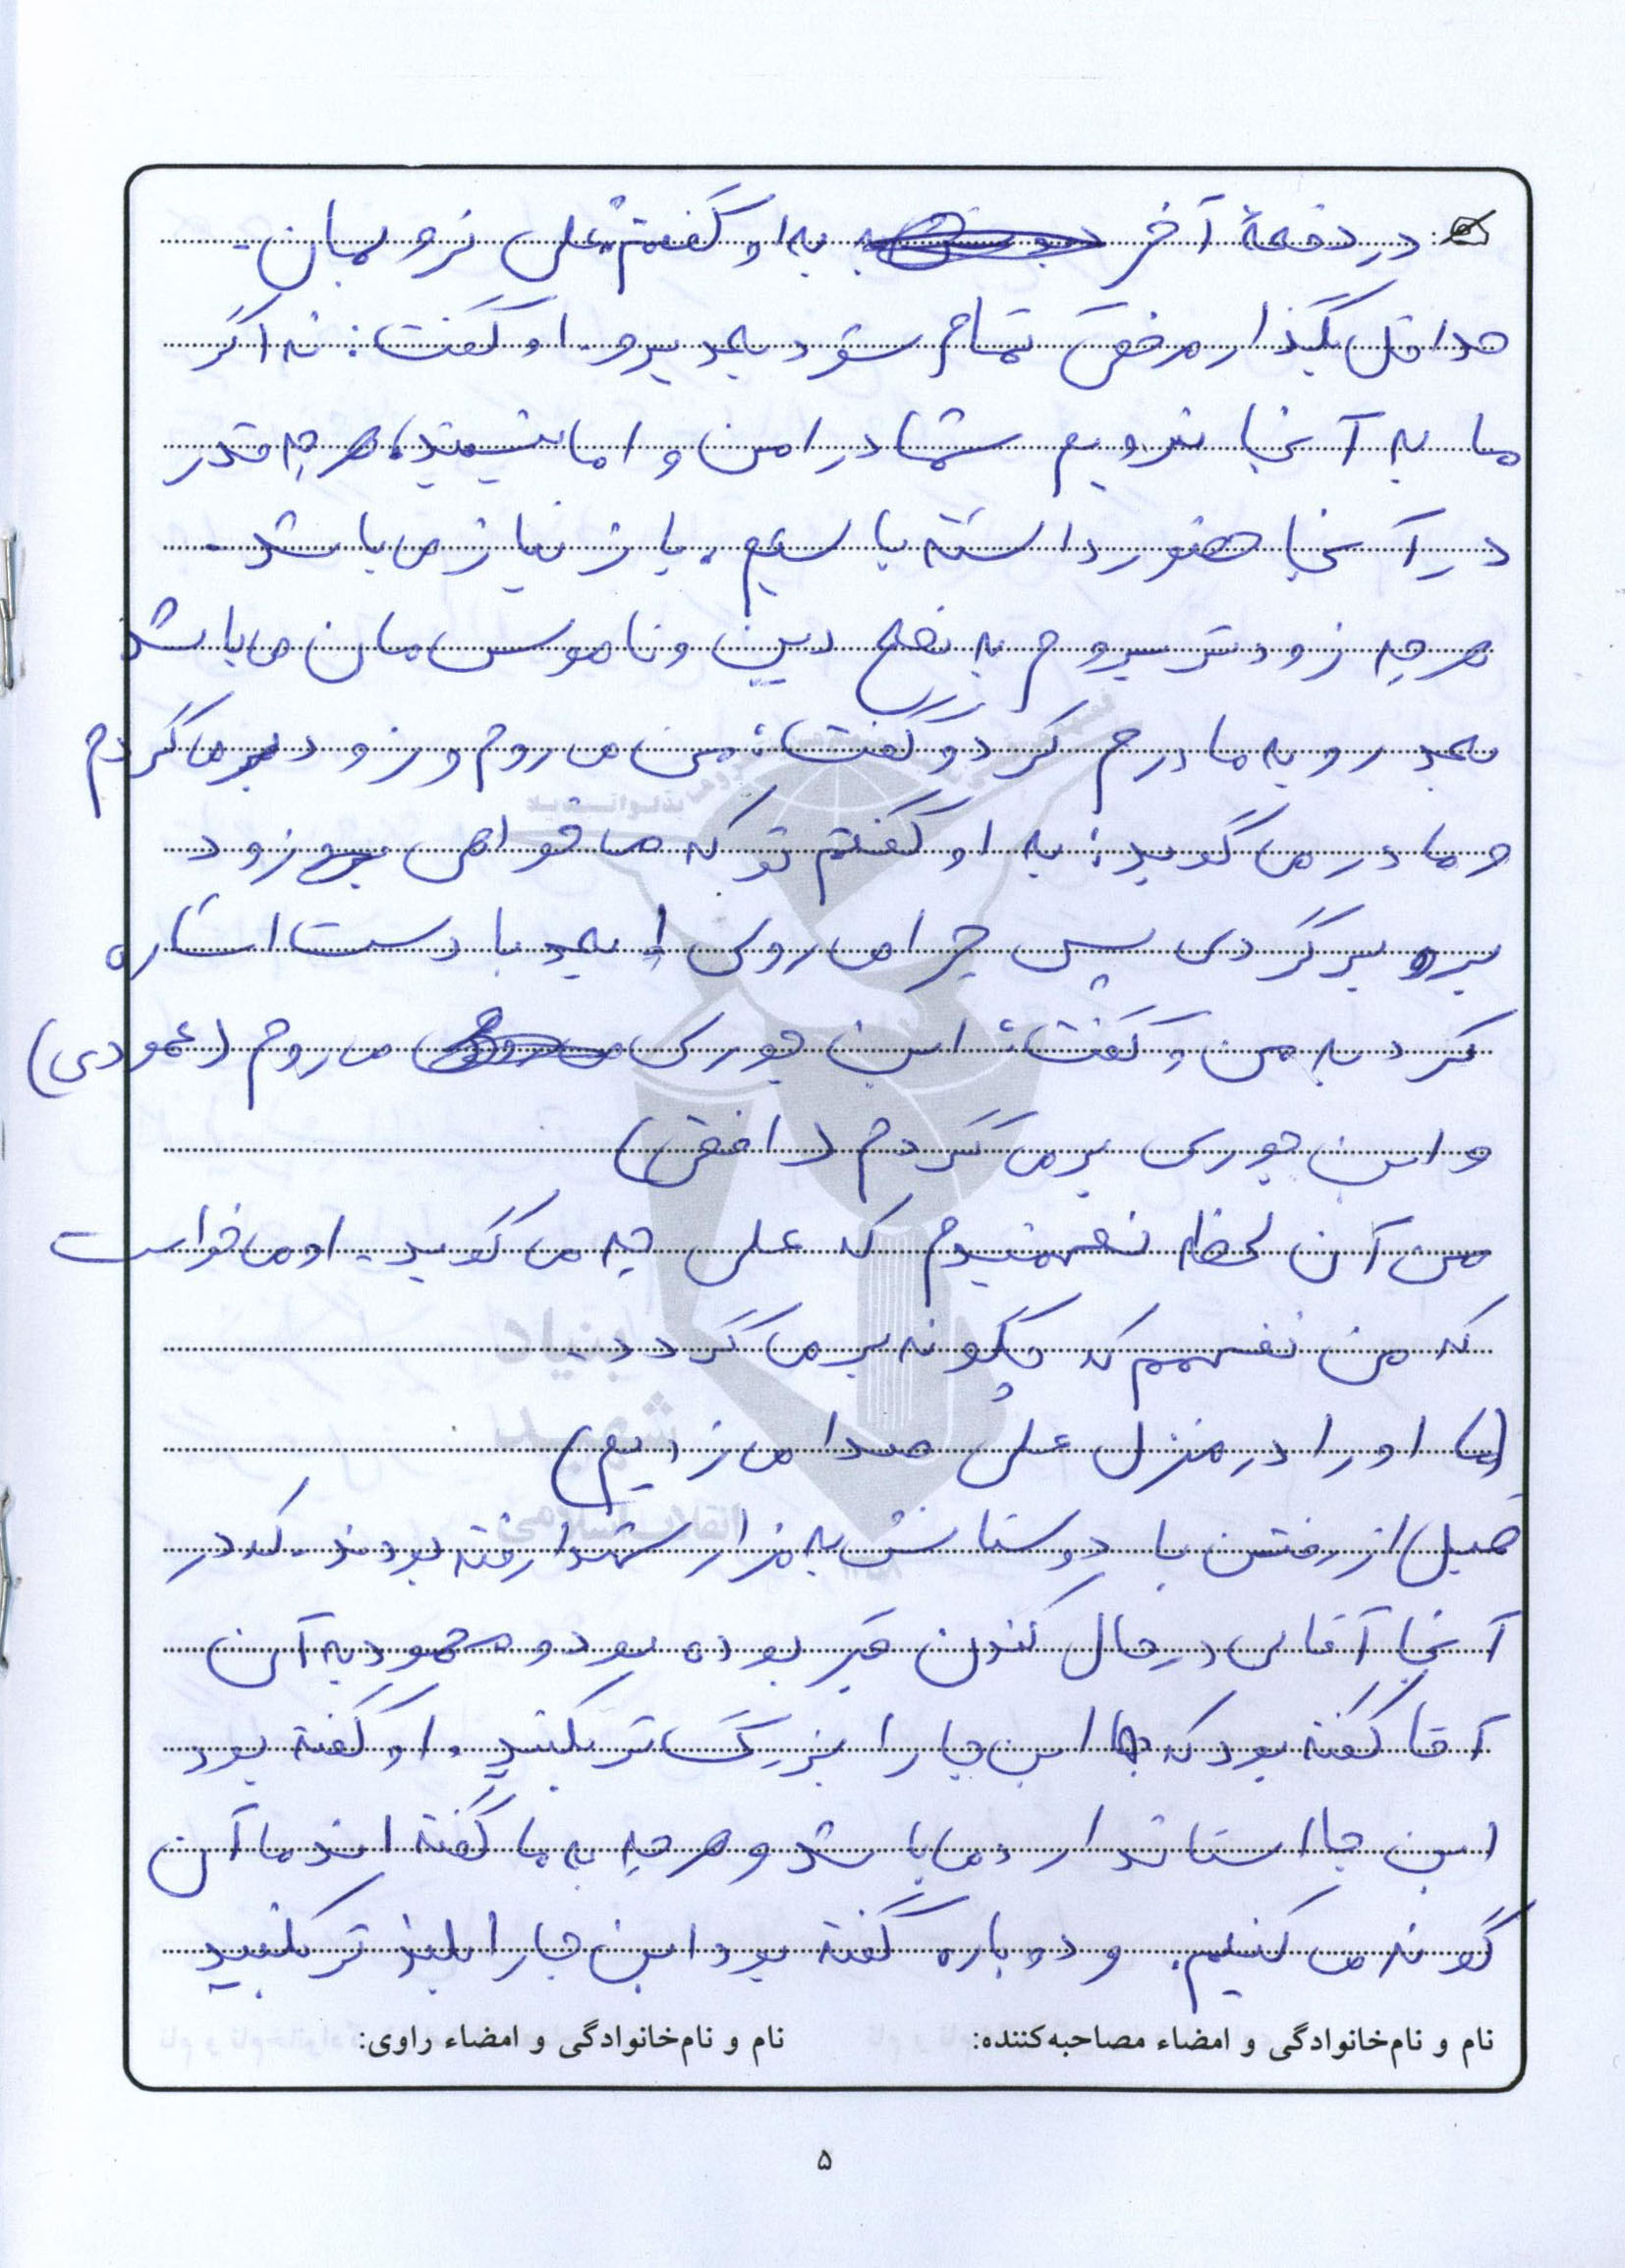 در دفعهٔ آخر به او گفتم علی نرو بمان.
حداقل بگذار مرخصی تمام شود بعد برو. او گفت: نه اگر
ما به آنجا نرویم شما در امن و امانیستید، هر چه قدر
در آنجا حضور داشته باشیم، باز نیاز می باشد.
هر چه زودتر بروم به نفع دین و ناموس مان می باشد
بعد رو به مادرم کرد و گفت: من می روم و زود بر می گردم
و مادر می گوید: به او گفتم تو که می خواهی زود
برگردی پس چرا می روی! بعد با دست اشاره
کرد به من و گفت: این جوری می روم (عمودی)
و این جوری بر می گردم (افقی)
من آن لحظه نفهمیدم که علی چه می گوید. او می خواست
که من نفهمم که چگونه بر می گردد.
(ما او را در منزل علی صدا می زدیم)
قبل از رفتن با دوستانش به مزار شهدا رفته بودند. که در
آنجا آقایی در حال کندن قبر بوده بود و محمود به آن
آقا گفته بود که این جا را بزرگ تر بکنید. او گفته بود
این جا استاندارد می باشد و هر چه به ما گفته اند ما آن
گونه می کنیم. و دوباره گفته بود این جا را بلند تر بکنید
نام و نام‌خانوادگی و امضاء مصاحبه‌کننده: نام و نام‌خانوادگی و امضاء راوی:
۵
بنیاد
شهید
انقلاب اسلامی